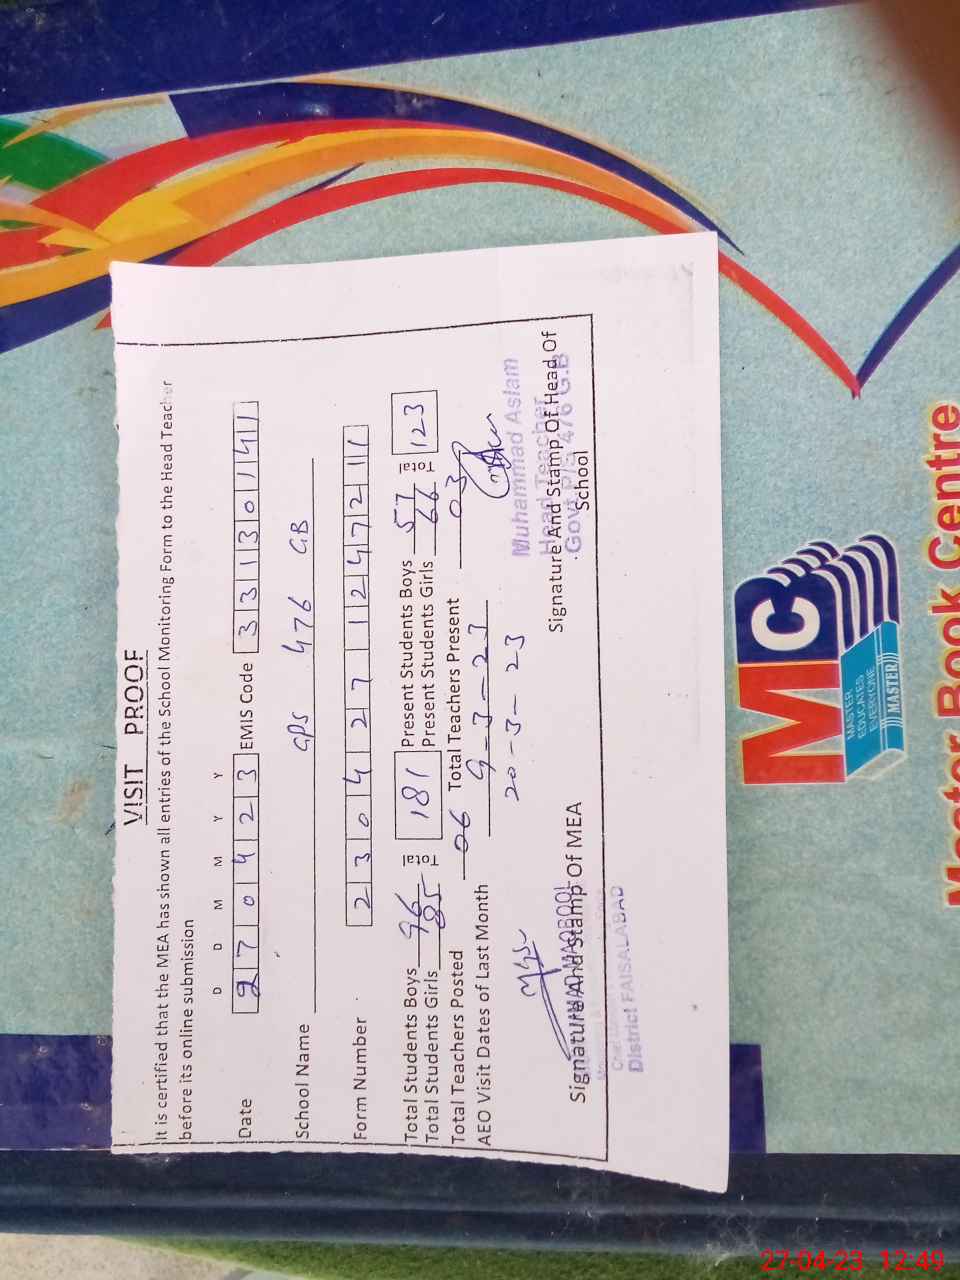 VISIT PROOF
It is certified that the MEA has shown all entries of the School Monitoring Form to the Head Teacher
before its online submission
D D M M Y Y
Date 270423 EMIS Code 33130141
School Name GPS 476 GB
Form Number 230427 1247211
Total Students Boys 96 Total 181 Present Students Boys 57 Total 123
Total Students Girls 85 Present Students Girls 66
Total Teachers Posted 06 Total Teachers Present 03
AEO Visit Dates of Last Month 9-3-23
20-3-23
Muhammad Aslam
Head Teacher
Govt P/S 476 G.B
Signature And Stamp Of MEA
Signature And Stamp Of Head Of
School
MAQBOOL
District FAISALABAD
MC
MASTER
EDUCATES
EVERYONE
MASTER
Master Book Centre
27-04-23 12:49